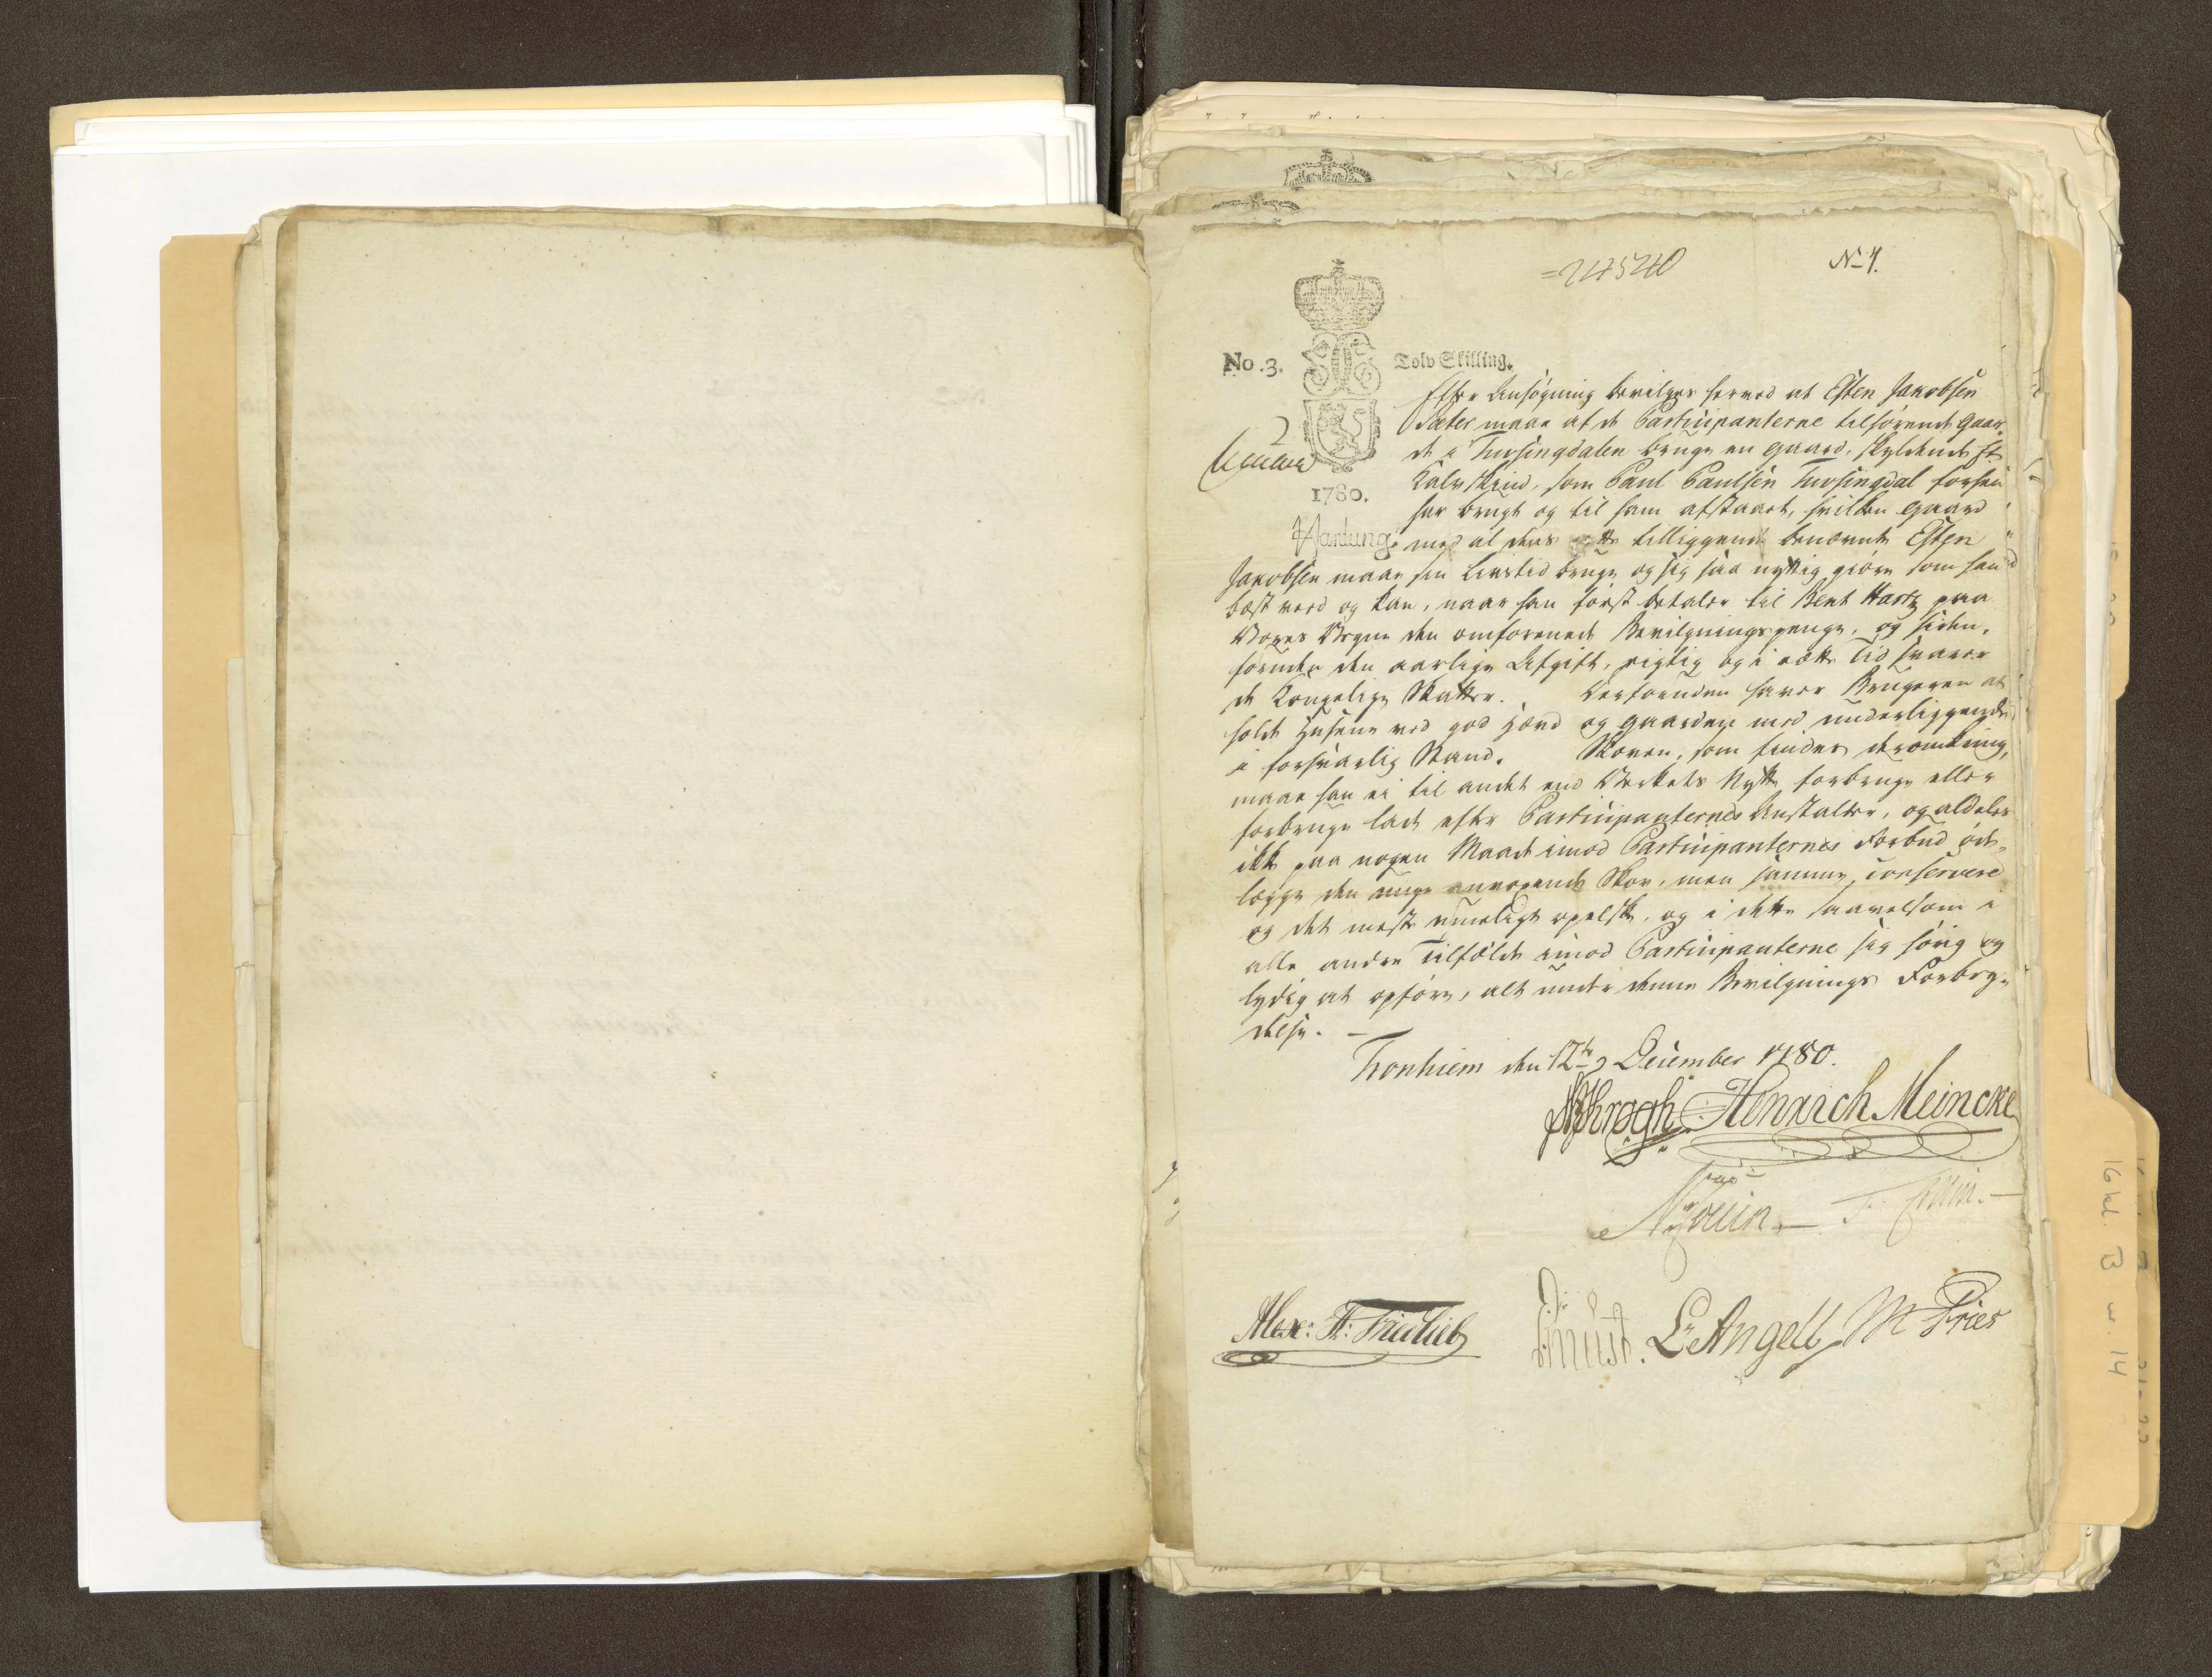 =247540
No 7.
No. 3.
Tolv Skilling.
1780.
Hartung.
Efter Ansøgning bevilges herved at Esten Jakobsen
Sæter maae af de Participanterne tilhørende Gaar-
de i Tufsingdalen bruge en Gaard, skyldende Et
Kalvskind, som Paul Paulsen Tufsingdal forhen
har brugt og til ham afstaaet, hvilken Gaard
med al dens rette tilliggende benævnte Esten
Jakobsen maae sin Livstid bruge og sig saa nyttig giøre som han
bæst veed og kan, naar han først betaler til Bent Hartz paa
Vores Vegne den omforenede Bevilgningspenge, og siden,
foruden den aarlige Afgift, rigtig og i rette Tid svarer
de Kongelige Skatter. Derforuden haver Brugeren at
holde Husene ved god Hævd og Gaarden med underliggende
i forsvarlig Stand. Skoven, som findes deromkring,
maae han ei til andet end Verkets Nytte forbruge eller
forbruge lade efter Participanternes Anstalter, og aldeles
ikke paa nogen Maade imod Participanternes Forbud øde-
lægge den unge anvoxende Skov, men samme conservere
og det meste mueligt opelske, og i dette saavelsom i
alle andre Tilfælde imod Participanterne sig hørig og
lydig at opføre, alt under denne Bevilgnings Forbry-
delse. —
Tronhiem den 12te December 1780.
Henrich Meincke
Alex: F: Friedlieb
Knust. L Angell M Fries
16 kl. B nr. 14